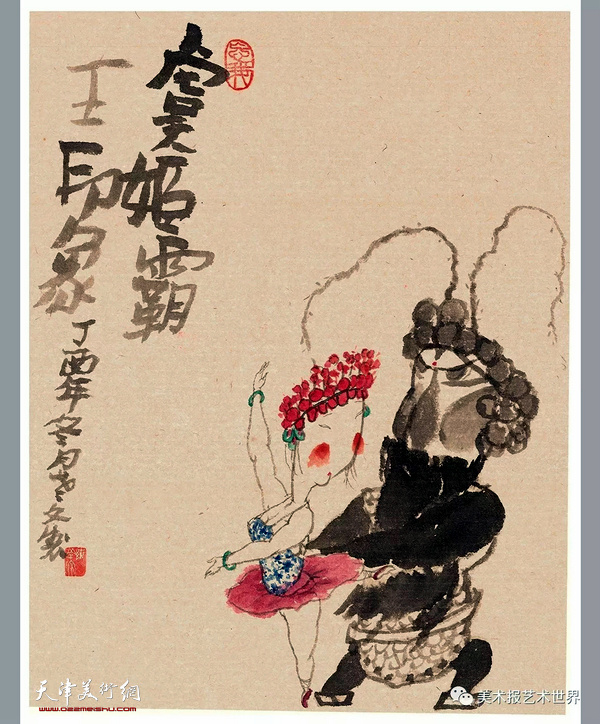 虞姬霸
王印象
丁酉年冬月文製
天津美術網
www.022meishu.com
美术报艺术世界